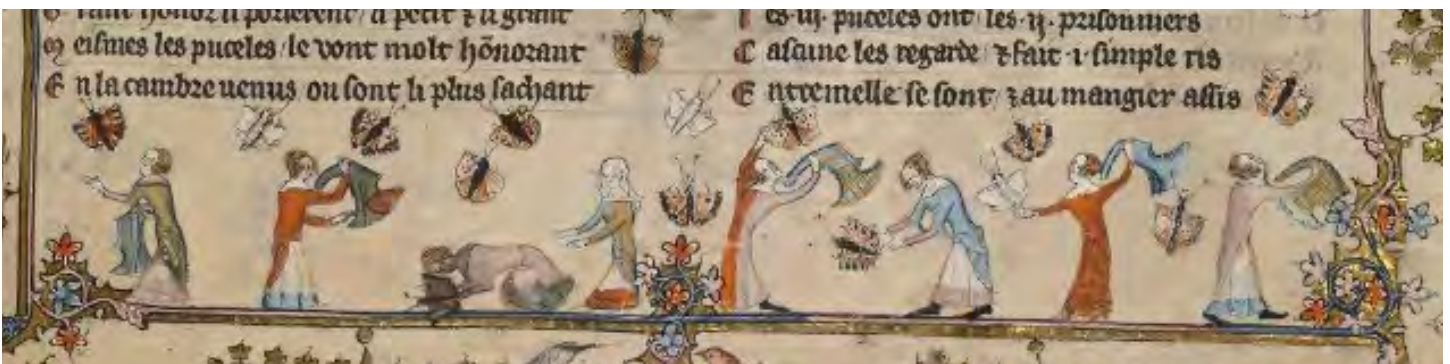 Grant honor li porterent / li petit ⁊ li grant
Meismes les puceles / le vont molt hōnorant
En la cambre uenus ou sont li plus sachant
Les .iij. puceles ont les .ij. prisonniers
Cascune les regarde ⁊ fait .i. simple ris
Entremelle se sont / ⁊ au mangier assis